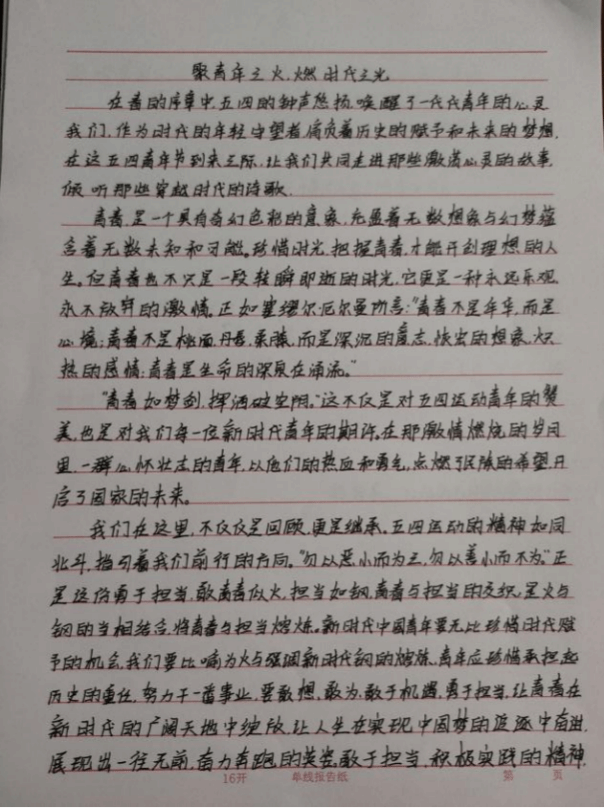 聚青年之火,燃时代之光
在春的序章中五四的钟声悠扬,唤醒了一代代青年的心灵
我们,作为时代的年轻守望者,肩负着历史的赋予和未来的梦想,
在这五四青年节到来之际,让我们共同走进那些激荡心灵的故事,
倾听那些穿越时代的诗歌.
青春,是一个具有奇幻色彩的意象,充盈着无数想象与幻梦,蕴
含着无数未知和可能。珍惜时光,把握青春,才能开创理想的人
生。但青春也不只是一段转瞬即逝的时光,它更是一种永远乐观
永不放弃的激情。正如塞缪尔厄尔曼所言:“青春不是年华,而是
心境;青春不是桃面、丹唇、柔膝,而是深沉的意志,恢宏的想象,炽
热的感情;青春是生命的深泉在涌流。”
“青春如梦剑,挥洒破空阴。”这不仅是对五四运动青年的赞
美,也是对我们每一位新时代青年的期许。在那激情燃烧的岁月
里,一群心怀壮志的青年,以他们的热血和勇气,点燃了民族的希望,开
启了国家的未来。
我们在这里,不仅仅是回顾,更是继承。五四运动的精神如同
北斗,指引着我们前行的方向。“勿以恶小而为之,勿以善小而不为。”正
是这份勇于担当,敢青春似火,担当如钢,青春与担当的交织,是火与
钢的当相结合,将青春与担当熔炼。新时代中国青年要无比珍惜时代赋
予的机会,我们要比喻为火与强调新时代钢的熔炼、青年应珍惜承担起
历史的重任,努力干一番事业,要敢想,敢为,敢于机遇,勇于担当,让青春在
新时代的广阔天地中绽放,让人生在实现中国梦的追逐中奋进,
展现出一往无前,奋力奔跑的英姿,敢于担当,积极实践的精神,
16开 单线报告纸 第 页